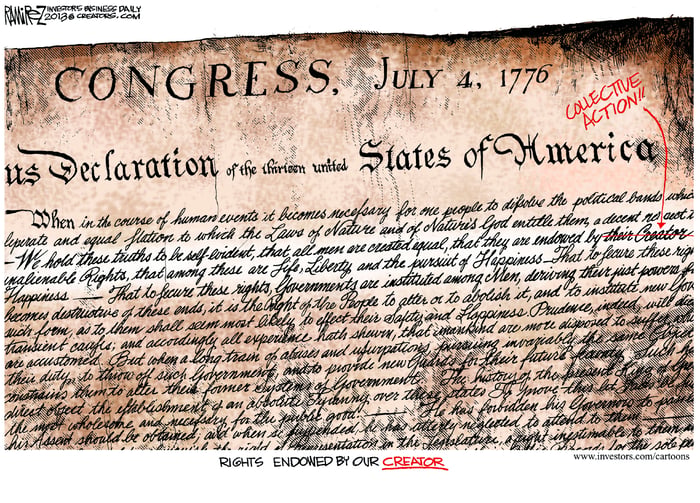 RAMIREZ INVESTORS BUSINESS DAILY
2013© CREATORS.COM
CONGRESS, JULY 4, 1776
COLLECTIVE
ACTION!!
us Declaration of the thirteen united States of America
When in the course of human events it becomes necessary for one people to dissolve the political bands whic
separate and equal station to which the Laws of Nature and of Nature's God entitle them, a decent
— We hold these truths to be self evident, that all men are created equal, that they are endowed by their Creator
inalienable Rights, that among these are Life, Liberty and the pursuit of Happiness — That to secure these rig
Happiness — That to secure these rights, Governments are instituted among Men, deriving their just powers
becomes destructive of these ends, it is the Right of the People to alter or to abolish it, and to institute new Gov
such form, as to them shall seem most likely to effect their Safety and Happiness. Prudence, indeed, will
transient causes, and accordingly all experience hath shewn, that mankind are more disposed to suffer
are accustomed. But when a long train of abuses and usurpations, pursuing invariably the same
their duty, to throw of such Government, and to provide new Guards for their future Security. Such
constrains them to alter their former Systems of Government. The history of the present King of
direct object the establishment of an absolute Tyranny over these States. To prove this, let
the most wholesome and necessary for the public good. He has forbidden his Governors to
his Assent should be obtained, and when so suspended, he has utterly neglected to attend to them
the right of Representation in the Legislature, a right inestimable to them
RIGHTS ENDOWED BY OUR CREATOR
www.investors.com/cartoons